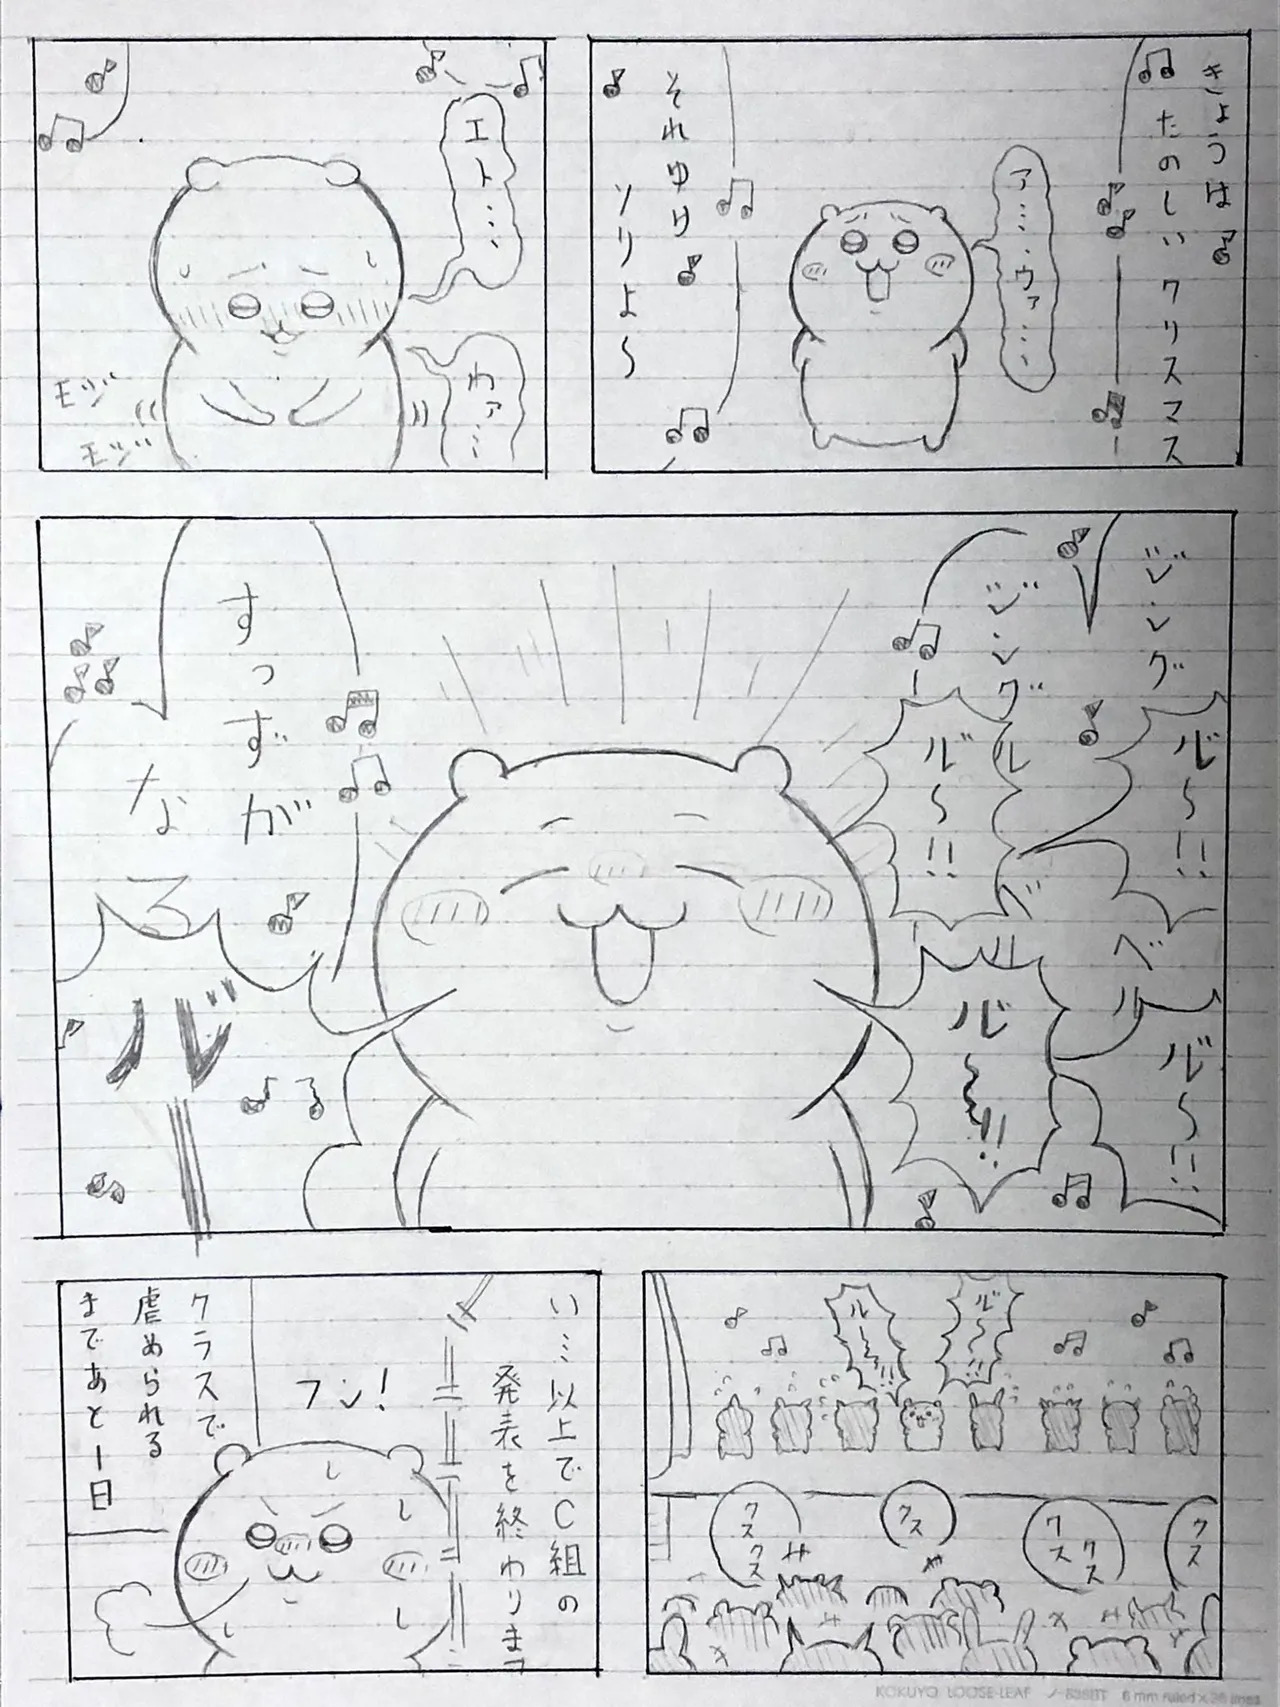 きょうは
たのしい クリスマス
ア…ウァ…
それゆけ
ソリよ〜
エト…
わァ…
モジ
モジ
ジング
ル゛〜!!
ジングル
ル゛〜!!
ベル
ベル
ル゛〜!!
ル゛〜!!
すっずが
なる
ル゛ー
ル゛〜!!
ル゛〜!!
クス
クス
クス
クス
クス
クス
い…以上でC組の
発表を終わりまっ
フン!
クラスで
虐められる
まであと一日
KOKUYO LOOSE-LEAF ノ-836BT 6 mm ruled×36 lines